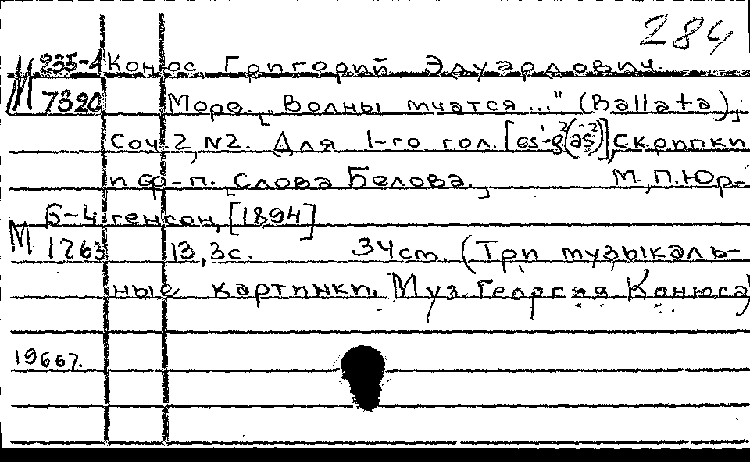 284
М 235-4 Конюс Григорий Эдуардович.
7320 Море. „Волны мчатся..." (Ballata),
Соч. 2, N2. Для 1-го гол. [es¹-g²(as²)], скрипки
и ф-п. [Слова Белова.] М., П. Юр-
М Б-4 генсон, [1894]
1763 13, 3с. 34 cm. (Три музыкаль-
ные картинки. Муз. Георгия Конюса)
1966г.